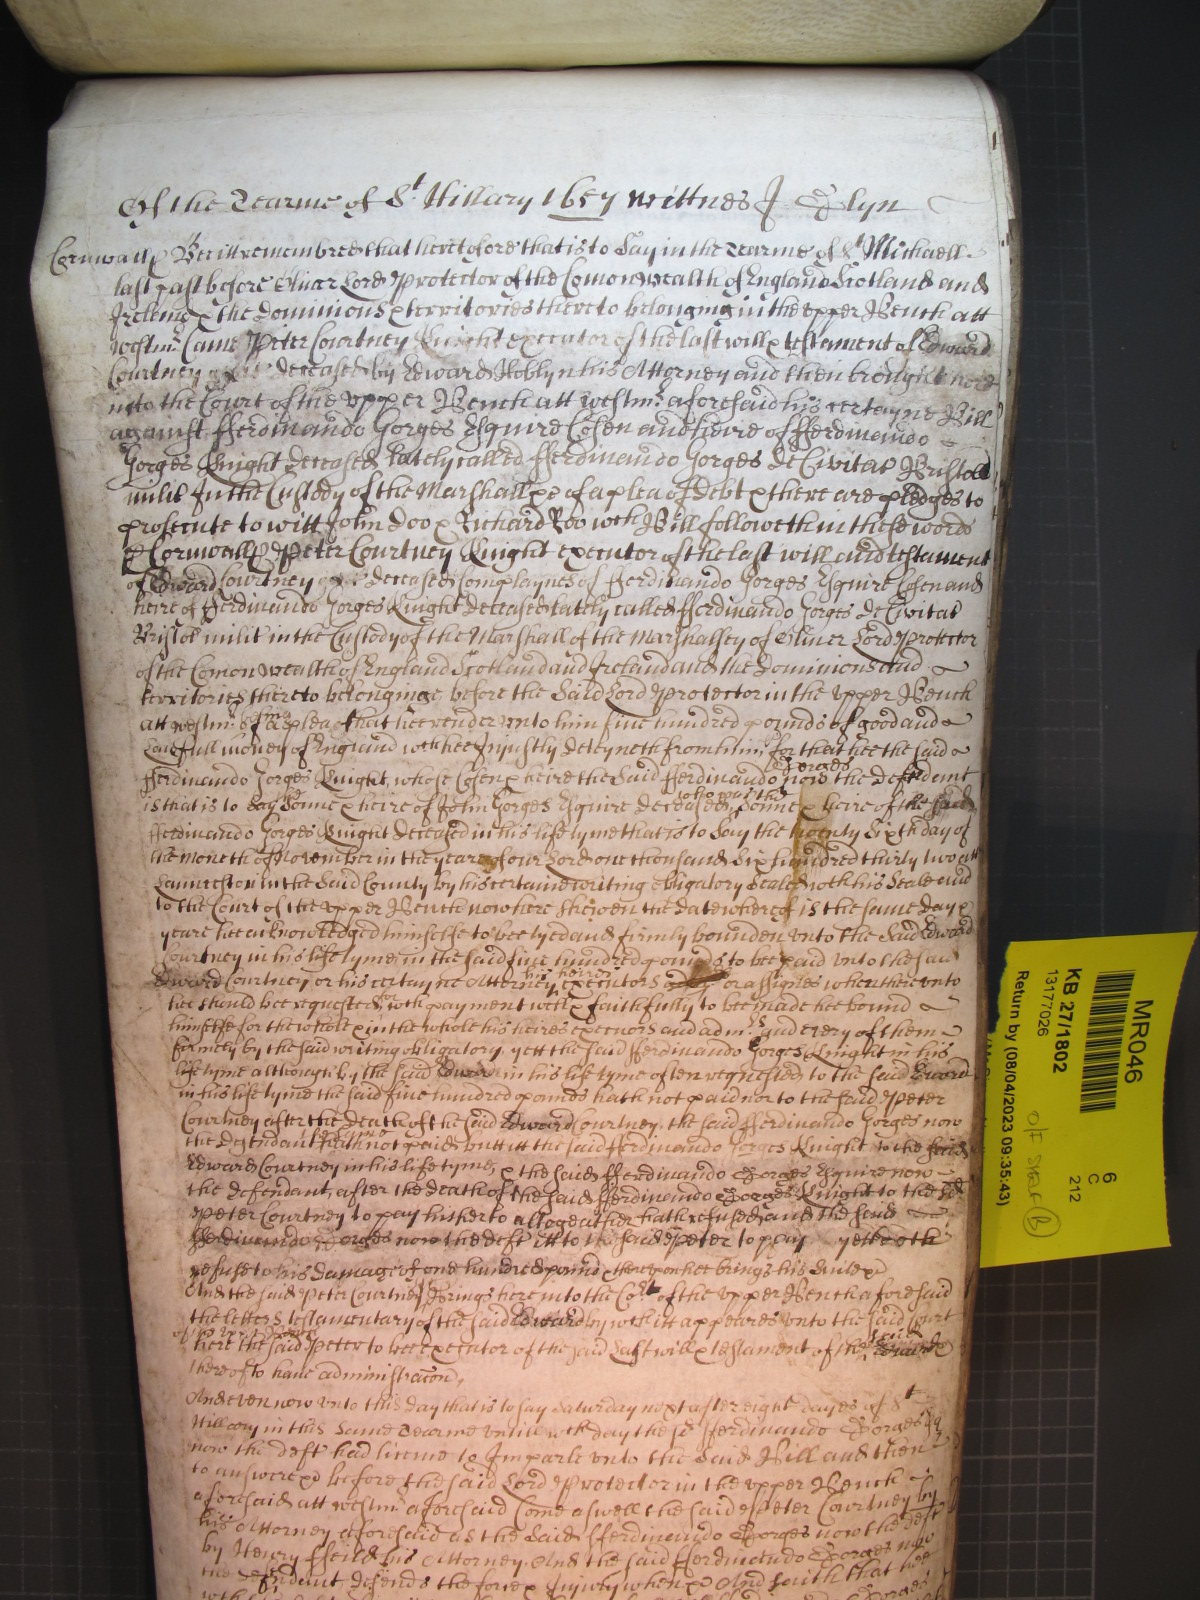 Of the Tearme of St Hillary 1657 wittnes J Glyn
Cornwall Be itt remembred that heretofore that is to say in the Tearme of St Michaell
last past before Oliver Lord Protector of the Comonwealth of England Scotland and
Ireland & the dominions & territories thereto belonging in the upper Bench att
westmr Came Peter Courtney Knight executor of the last will & testament of Edward
Courtney deceased by Edward Hoblyn his Attorney and then brought here
into the Court of the upper Bench att westmr aforesaid his certayne Bill
against fferdinando Gorges Esquire Cosen and heire of fferdinando
Gorges Knight deceased lately called fferdinando Gorges de Civitat Bristoll
milit In the Custody of the Marshall &c of a plea of debt & there are pledges to
prosecute to witt John Doo & Richard Roo wch Bill followeth in these words
Cornwall Peter Courtney Knight executor of the last will and testament
of Edward Courtney deceased complaynes of fferdinando Gorges Esquire Cosen and
heire of fferdinando Gorges Knight deceased lately called fferdinando Gorges de Civitat
Bristol milit in the Custody of the Marshall of the Marshallsey of Oliver Lord Protector
of the Comonwealth of England Scotland and Ireland and the dominions and
territories thereto belonginge before the said Lord Protector in the upper Bench
att westmr of a plea that hee render unto him five hundred pounds of good and
lawfull money of England wch hee Injustly deteyneth from him for that hee the said
Gorges
fferdinando Gorges Knight, whose Cosen & heire the said fferdinando now the defendant
who was the
is that is to say sonne & heire of John Gorges Esquire deceased, sonne & heire of the said
fferdinando Gorges Knight deceased in his life tyme that is to say the twenty sixth day of
the moneth of November in the yeare of our Lord one thousand six hundred thirty two att
Launceston in the said County by his certaine writing obligatory sealed with his seale and
to the Court of the upper Bench now here shewen the date whereof is the same day &
yeare hee acknowledged himselfe to bee tyed and firmly bounden unto the said Edward
Courtney in his life tyme, in the said five hundred pounds to bee paid unto the said
his heires
Edward Courtney or his certayne Attorney executors or assignes when thereunto
hee should bee requested, wch payment well & faithfully to bee made hee bound
himselfe for the whole & in the whole his heires executors and admrs and every of them
firmely by the said writing obligatory. yett the said fferdinando Gorges Knight in his
life tyme although by the said Edward in his life tyme often requested to the said Edward
in his life tyme the said five hundred pounds hath not paid nor to the said Peter
Courtney after the death of the said Edward Courtney, the said fferdinando Gorges now
the defendant hath not paid, butt itt the said fferdinando Gorges Knight to the said
Edward Courtney in his life tyme, & the said fferdinando Gorges Esquire now
the defendant, after the death of the said fferdinando Gorges Knight to the sd
Peter Courtney to pay hitherto altogeather hath refused and the said
fferdinando Gorges now the deft itt to the said Peter to pay yett doth
refuse to his damage of one hundred pound & thereupon hee brings his suite &c
And the said Peter Courtney Brings here into the Cort of the upper Bench aforesaid
the letters testamentary of the said Edward by wch itt appeares unto the said Court
here the said Peter to bee executor of the said last will & testament of the said Edward
thereof to have administracon.
And even now unto this day that is to say Saturday next after eight dayes of St
Hillary in this same Tearme untill wch day the sd fferdinando Gorges Esq
now the deft had licence to Imparle unto the said Bill and then
to answere &c before the said Lord Protector in the upper Bench
aforesaid att westmr aforesaid Come aswell the said Peter Courtney by
his Attorney aforesaid as the said fferdinando Gorges now the deft
by Henry ffeild his Attorney. And the said fferdinando Gorges now
the defendant defends the force & Injury when &c And saith that hee
MR046
KB 27/1802
13177026
Return by (08/04/2023 09:35:43)
6
C
212
O/F STAR (B)